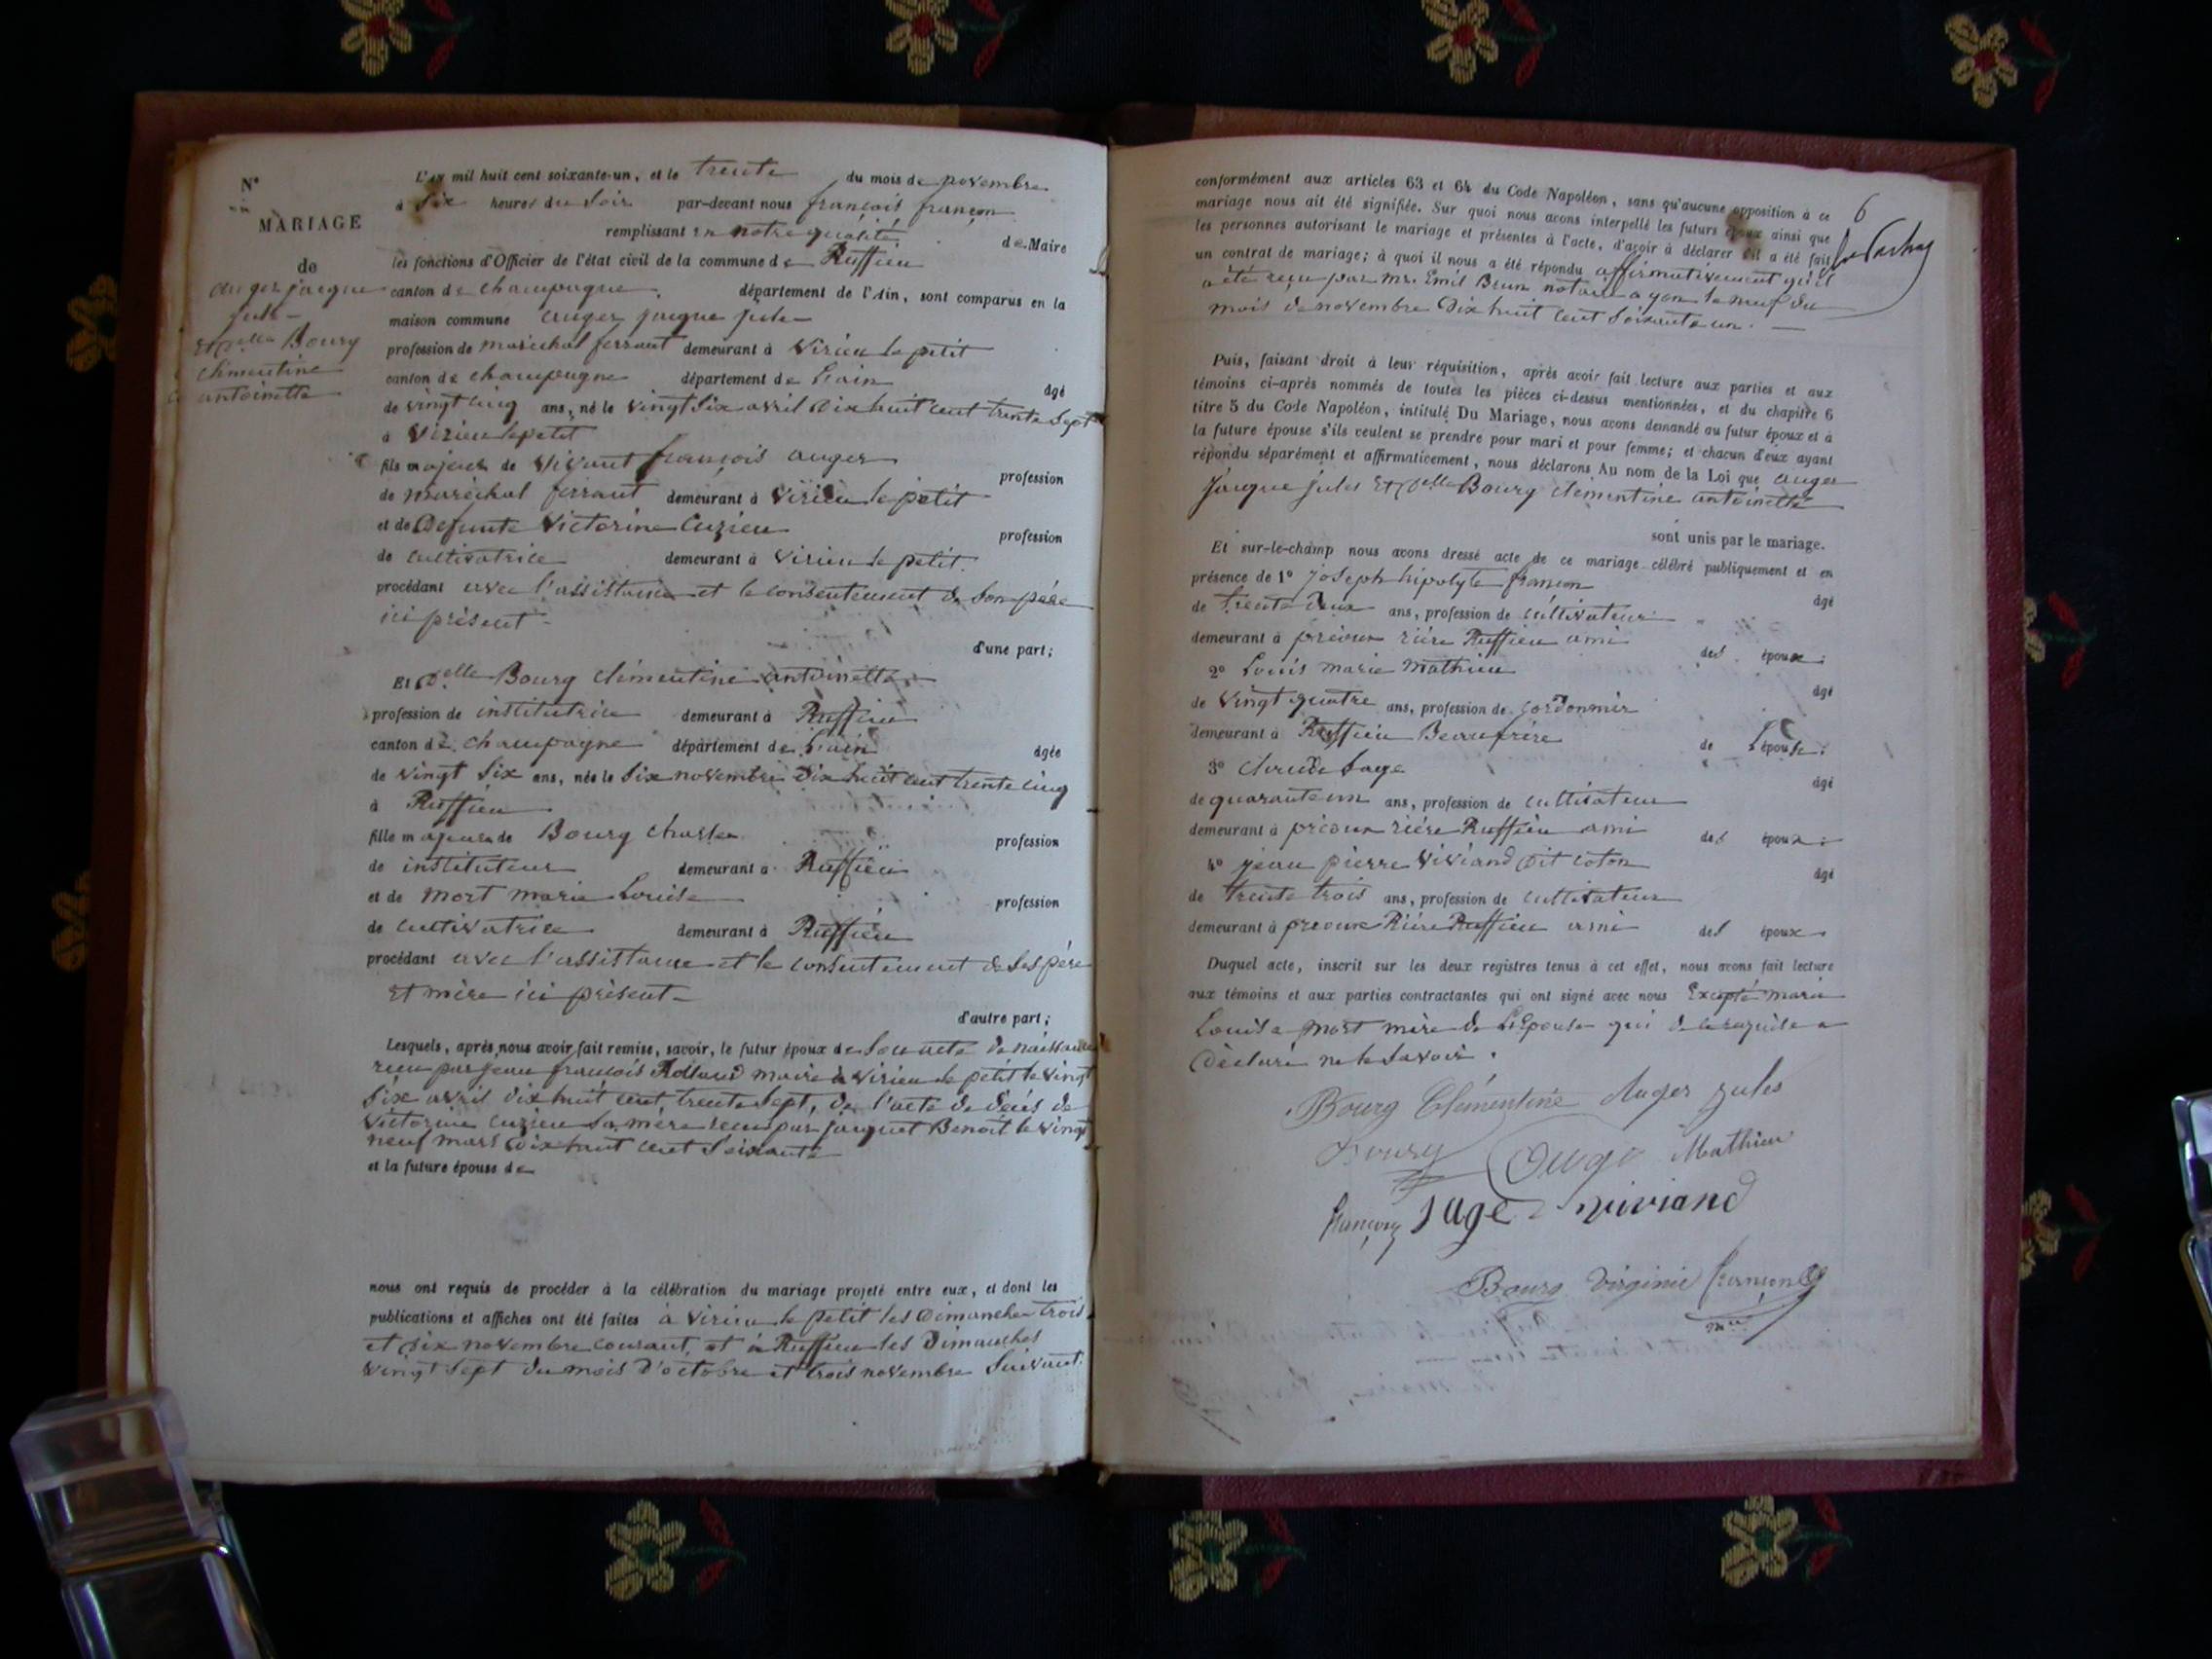 N°
MARIAGE
de
auger jacque
jule
et Delle Bourg
clementine
antoinette
L'an mil huit cent soixante-un, et le trente du mois de novembre
à Six heures du Soir par-devant nous françois françon
remplissant en notre qualité de Maire
les fonctions d'Officier de l'état civil de la commune de Ruffieu
canton de champagne département de l'Ain, sont comparus en la
maison commune auger jacque jule
profession de maréchal ferrant demeurant à Virieu le petit
canton de champagne département de l'ain âgé
de vingt cinq ans, né le vingt Six avril Dix huit cent trente Sept
à Virieu le petit
fils majeur de Vivant françois auger profession
de maréchal ferrant demeurant à Virieu le petit
et de Defunte Victorine Cuzieu profession
de cultivatrice demeurant à Virieu le petit
procédant avec l'assistance et le consentement de Son père
ici présent
d'une part;
Et Delle Bourg clémentine antoinette
profession de institutrice demeurant à Ruffieu
canton de champagne département de l'ain âgée
de vingt Six ans, née le Six novembre Dix huit cent trente cinq
à Ruffieu
fille majeure de Bourg charles profession
de instituteur demeurant à Ruffieu
et de mort marie Louise profession
de cultivatrice demeurant à Ruffieu
procédant avec l'assistance et le consentement de Ses père
et mère ici présent
d'autre part;
Lesquels, après nous avoir fait remise, savoir, le futur époux de Son acte de naissance
recu par jean françois Rolland maire à Virieu le petit le vingt
Six avril Dix huit cent trente Sept, de l'acte de décés de
Victorine Cuzieu Sa mère recu par jacquet Benoit le vingt
neuf mars Dix huit cent Soixante
et la future épouse de
nous ont requis de procéder à la célébration du mariage projeté entre eux, et dont les
publications et affiches ont été faites à Virieu le petit les Dimanches trois
et Dix novembre courant, et à Ruffieu les Dimanches
vingt Sept du mois d'octobre et trois novembre Suivant
6
conformément aux articles 63 et 64 du Code Napoléon, sans qu'aucune opposition à ce
mariage nous ait été signifiée. Sur quoi nous avons interpellé les futurs époux ainsi que
les personnes autorisant le mariage et présentes à l'acte, d'avoir à déclarer s'il a été fait
un contrat de mariage; à quoi il nous a été répondu affirmativement qu'il
a été recu par Mr. Emil Brun notaire a yon le neuf du
mois de novembre Dix huit cent Soixante un.
Puis, faisant droit à leur réquisition, après avoir fait lecture aux parties et aux
témoins ci-après nommés de toutes les pièces ci-dessus mentionnées, et du chapitre 6
titre 5 du Code Napoléon, intitulé Du Mariage, nous avons demandé au futur époux et à
la future épouse s'ils veulent se prendre pour mari et pour femme; et chacun d'eux ayant
répondu séparément et affirmativement, nous déclarons Au nom de la Loi que auger
jacque jules et Delle Bourg clémentine antoinette
sont unis par le mariage.
Et sur-le-champ nous avons dressé acte de ce mariage célébré publiquement et en
présence de 1° joseph hipolyte françon âgé
de trente Deux ans, profession de cultivateur
demeurant à prévoux rière Ruffieu ami des époux;
2° Louis marie mathieu âgé
de vingt quatre ans, profession de cordonnier
demeurant à Ruffieu Beaufrère de L'épouse;
3° claude Sage âgé
de quarante un ans, profession de cultivateur
demeurant à prévoux rière Ruffieu ami des époux;
4° jean pierre Viviand Dit coton âgé
de trente trois ans, profession de cultivateur
demeurant à prevoux Rière Ruffieu ami des époux.
Duquel acte, inscrit sur les deux registres tenus à cet effet, nous avons fait lecture
aux témoins et aux parties contractantes qui ont signé avec nous Excepté marie
Louise mort mère de L'Epouse qui de ce requise a
Déclaré ne le Savoir.
Bourg Clémentine Auger Jules
Bourg Auger Mathieu
françon Sage viviand
Bourg Virginie françon